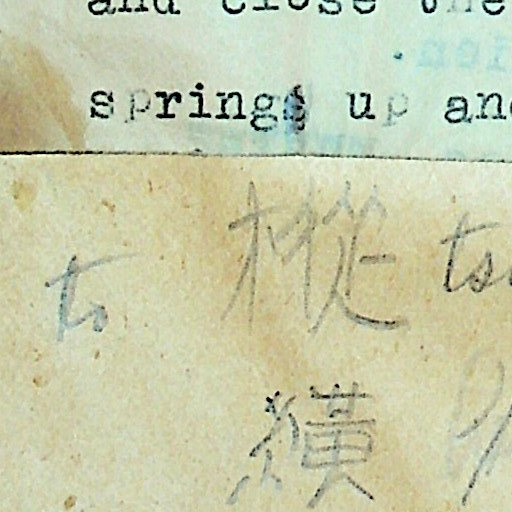 and close the
springs up and
to 樅 ts
横